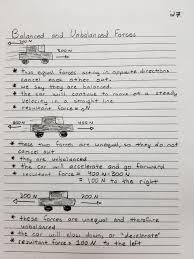 27
Balanced and Unbalanced Forces
300 N 300 N
* Two equal forces acting in opposite directions
cancel each other out.
* we say they are balanced.
* the car will continue to move at a steady
velocity in a straight line
* resultant force = 0N
300 N 400 N
* these two forces are unequal, so they do not
cancel out.
* they are unbalanced
* the car will accelerate and go forward
* resultant force = 400N - 300N
= 100 N to the right
200 N
* these forces are unequal and therefore
unbalanced
* the car will slow down, or "decelerate"
* resultant force 200N to the left